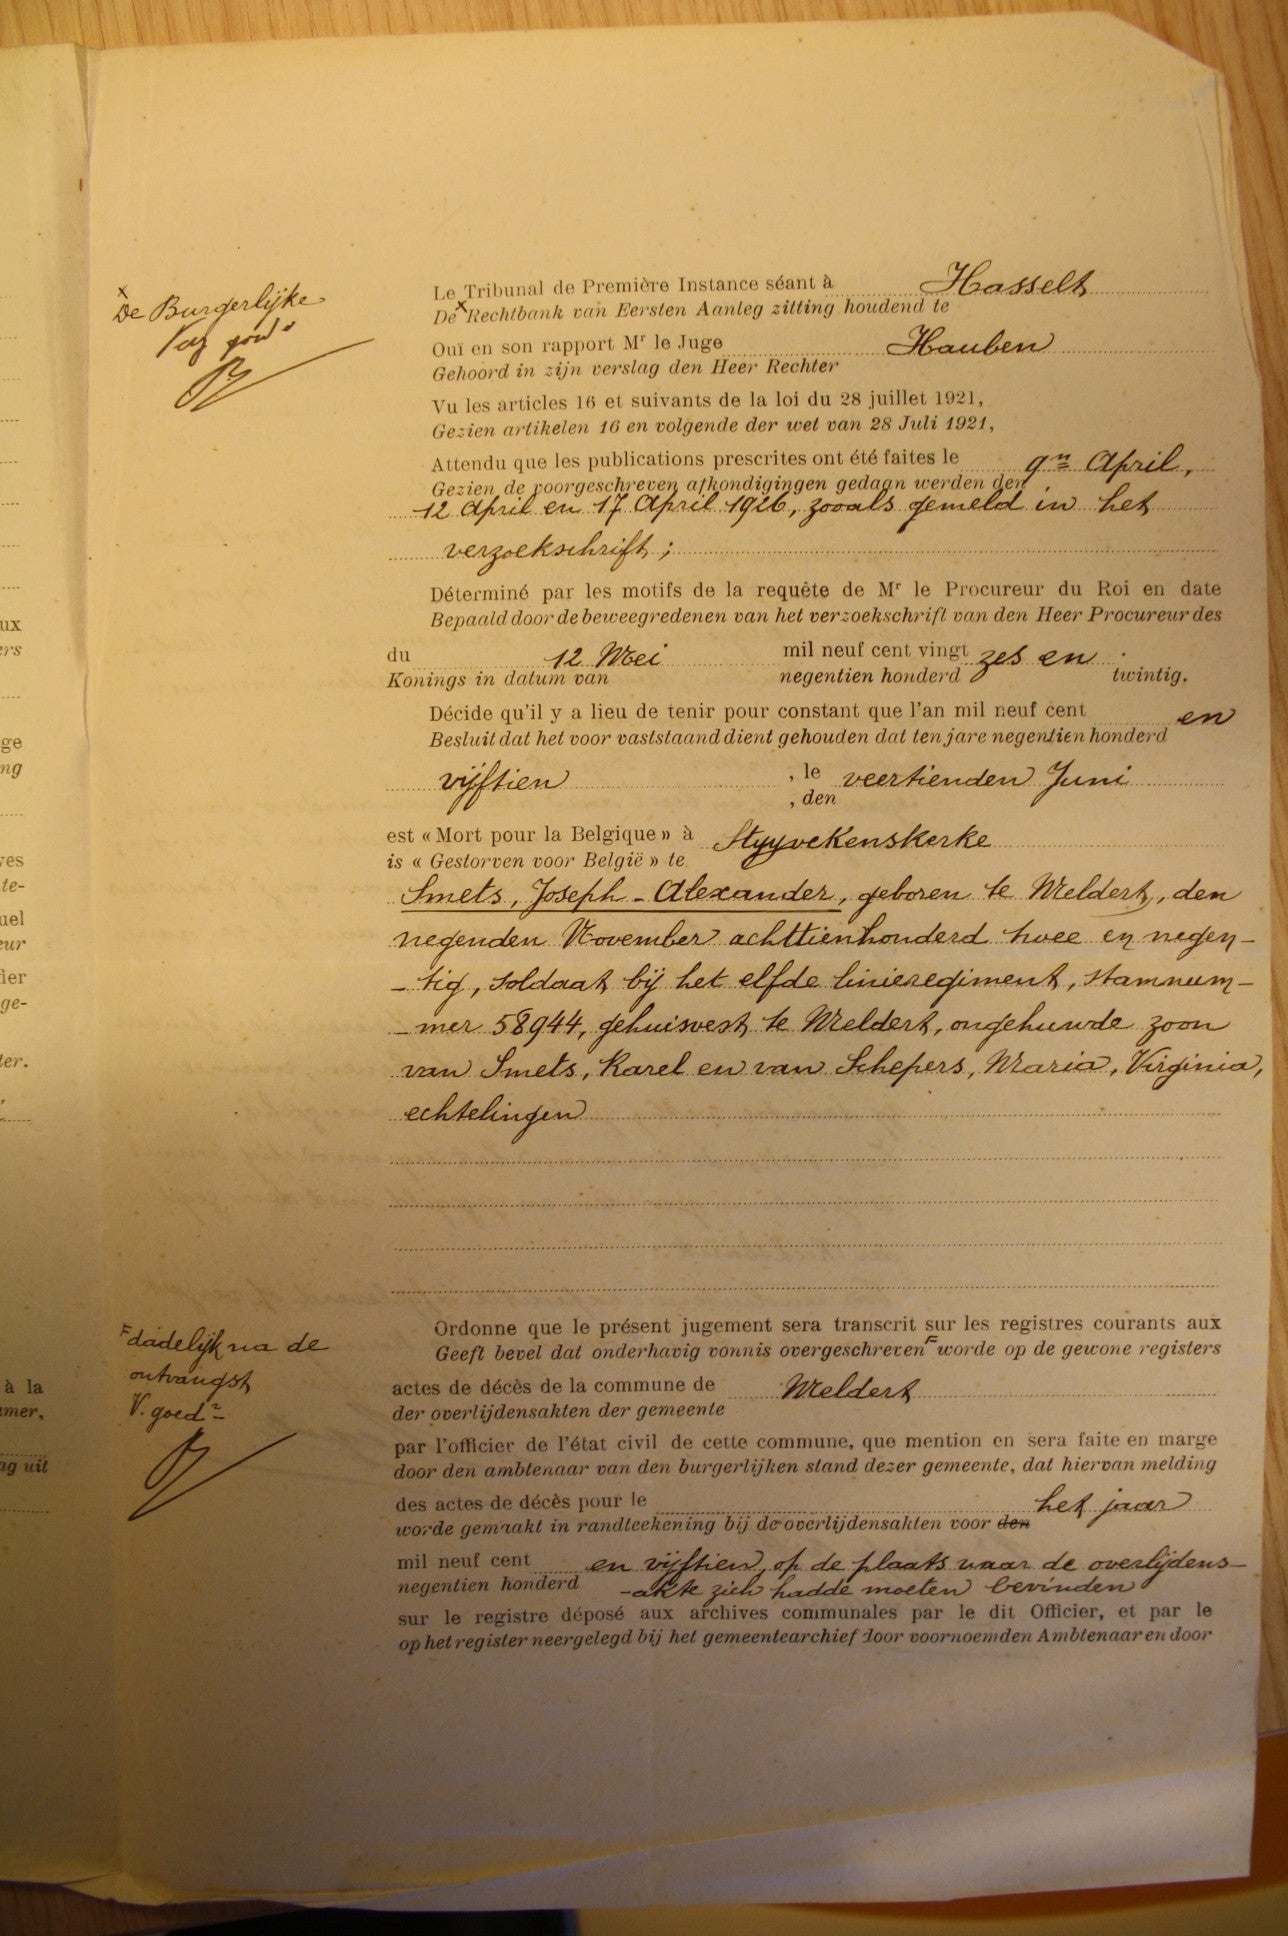 x
De Burgerlijke
goed
Le Tribunal de Première Instance séant à Hasselt
De x Rechtbank van Eersten Aanleg zitting houdend te
Ouï en son rapport Mr le Juge Hauben
Gehoord in zijn verslag den Heer Rechter
Vu les articles 16 et suivants de la loi du 28 juillet 1921,
Gezien artikelen 16 en volgende der wet van 28 Juli 1921,
Attendu que les publications prescrites ont été faites le 9n April,
Gezien de voorgeschreven afkondigingen gedaan werden den
12 April en 17 April 1926, zooals gemeld in het
verzoekschrift ;
Déterminé par les motifs de la requête de Mr le Procureur du Roi en date
Bepaald door de beweegredenen van het verzoekschrift van den Heer Procureur des
du 12 Mei mil neuf cent vingt zes en .
Konings in datum van negentien honderd twintig.
Décide qu'il y a lieu de tenir pour constant que l'an mil neuf cent en
Besluit dat het voor vaststaand dient gehouden dat ten jare negentien honderd
vijftien , le veertienden Juni
, den
est « Mort pour la Belgique » à Stuyvekenskerke
is « Gestorven voor België » te
Smets, Joseph - Alexander, geboren te Meldert, den
negenden November achttienhonderd twee en negen-
- tig, soldaat bij het elfde linieregiment, stamnum-
- mer 58944, gehuisvest te Meldert, ongehuwde zoon
van Smets, Karel en van Schepers, Maria, Virginia,
echtelingen
F dadelijk na de
ontvangst
V. goed
Ordonne que le présent jugement sera transcrit sur les registres courants aux
Geeft bevel dat onderhavig vonnis overgeschreven F worde op de gewone registers
actes de décès de la commune de Meldert
der overlijdensakten der gemeente
par l'officier de l'état civil de cette commune, que mention en sera faite en marge
door den ambtenaar van den burgerlijken stand dezer gemeente, dat hiervan melding
des actes de décès pour le het jaar
worde gemaakt in randteekening bij de overlijdensakten voor den
mil neuf cent en vijftien, op de plaats waar de overlijdens-
negentien honderd -akte zich hadde moeten bevinden
sur le registre déposé aux archives communales par le dit Officier, et par le
op het register neergelegd bij het gemeentearchief door voornoemden Ambtenaar en door
ux
ers
ge
ng
ves
te-
uel
eur
fier
ge-
ter.
à la
amer,
ag uit